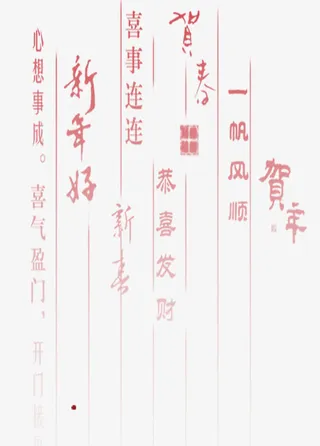 賀年
一帆风顺
賀春
恭喜发财
喜事连连
新春
新年好
心想事成。喜气盈门，开门